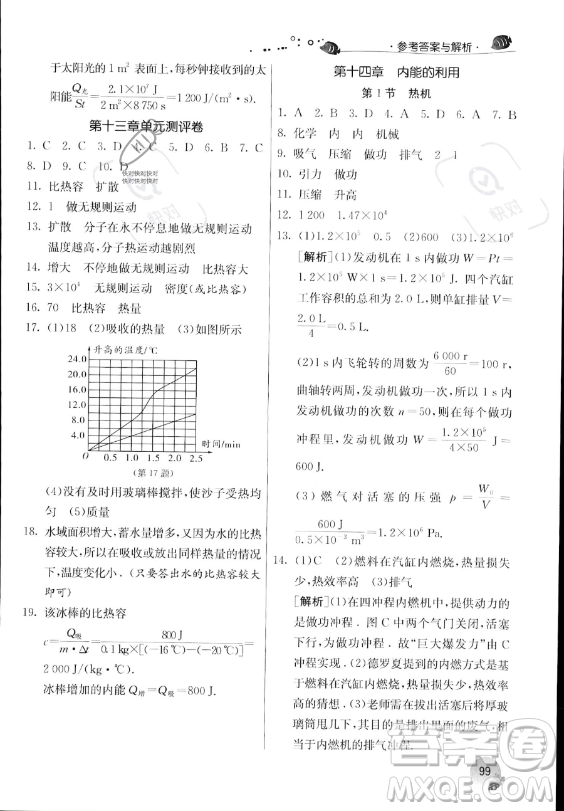 ·参考答案与解析·
于太阳光的 1 m² 表面积,每秒钟接收到的太
阳能 Q光/St = 2.1×10⁷ J / 2 m²×8 750 s = 1 200 J/(m²·s).
第十三章单元测评卷
1. C 2. C 3. D 4. C 5. C 6. B 7. C
8. D 9. C 10. D
11. 比热容 扩散
12. 1 做无规则运动
13. 扩散 分子在永不停息地做无规则运动
温度越高,分子热运动越剧烈
14. 增大 不停地做无规则运动 比热容
15. 3×10⁴ 无规则运动 密度(或比热容)
16. 70 比热容 热量
17. (1)18 (2)吸收的热量 (3)如图所示
升高的温度/℃
24.0
20.0
16.0
12.0
8.0
4.0
0 0.5 1.0 1.5 2.0 2.5 时间/min
(第 17 题)
(4)没有及时用玻璃棒搅拌,使沙子受热均
匀 (5)质量
18. 水域面积增大,蓄水量增多,又因为水的比热
容较大,所以在吸收或放出热量相同的情况
下,温度变化小.(只要答出比热容较大的特点
即可)
19. 该冰棒的比热容
c = Q吸/m·Δt = 800 J / 0.1 kg×[(-16 ℃)-(-20 ℃)] =
2 000 J/(kg·℃).
冰棒增加的内能 Q增=Q吸=800 J.
第十四章 内能的利用
第 1 节 热机
1. C 2. A 3. D 4. C 5. C 6. A 7. B
8. 化学 内 内 机械
9. 吸气 压缩 做功 排气 2 1
10. 引力 做功
11. 压缩 升高
12. 1 200 1.47×10⁴
13. (1)1.2×10⁵ 0.5 (2)600 (3)1.2×10⁶
[解析](1)发动机在 1 s 内做功 W=Pt=
1.2×10⁵ W×1 s=1.2×10⁵ J. 四个汽缸
工作容积的总和为 2.0 L,单缸排量 V=
2.0 L/4 = 0.5 L.
(2)1 s 内飞轮转的周数为 6 000 r/60 = 100 r,
曲轴转两周,发动机做功一次,所以 1 s 内
发动机做功的次数 n=50,发动机在一个做功
冲程里,发动机做功 W₀ = 1.2×10⁵/4×50 J =
600 J.
(3) 燃气对活塞的压强 p = W₀/V =
600 J / 0.5×10⁻³ m³ = 1.2×10⁶ Pa.
14. (1)C (2)燃料在汽缸内燃烧,热量损失
少,热效率高 (3)排气
[解析](1)在四冲程内燃机中,最有力量的
是做功冲程,图 C 中两个气门关闭,活塞
下行,为做功冲程. 故“巨大爆发力”由 C
冲程实现.(2)德罗夏提到的内燃方式是燃
料在汽缸内燃烧,热量损失少,有较高热效
率的猜想.(3)老师需在拔出活塞后将厚玻
璃筒甩几下,以排出里面的废气,相
当于内燃机的排气冲程.
快对
快对快对快对
快对快对快对
答案圈
MXQE.COM
99